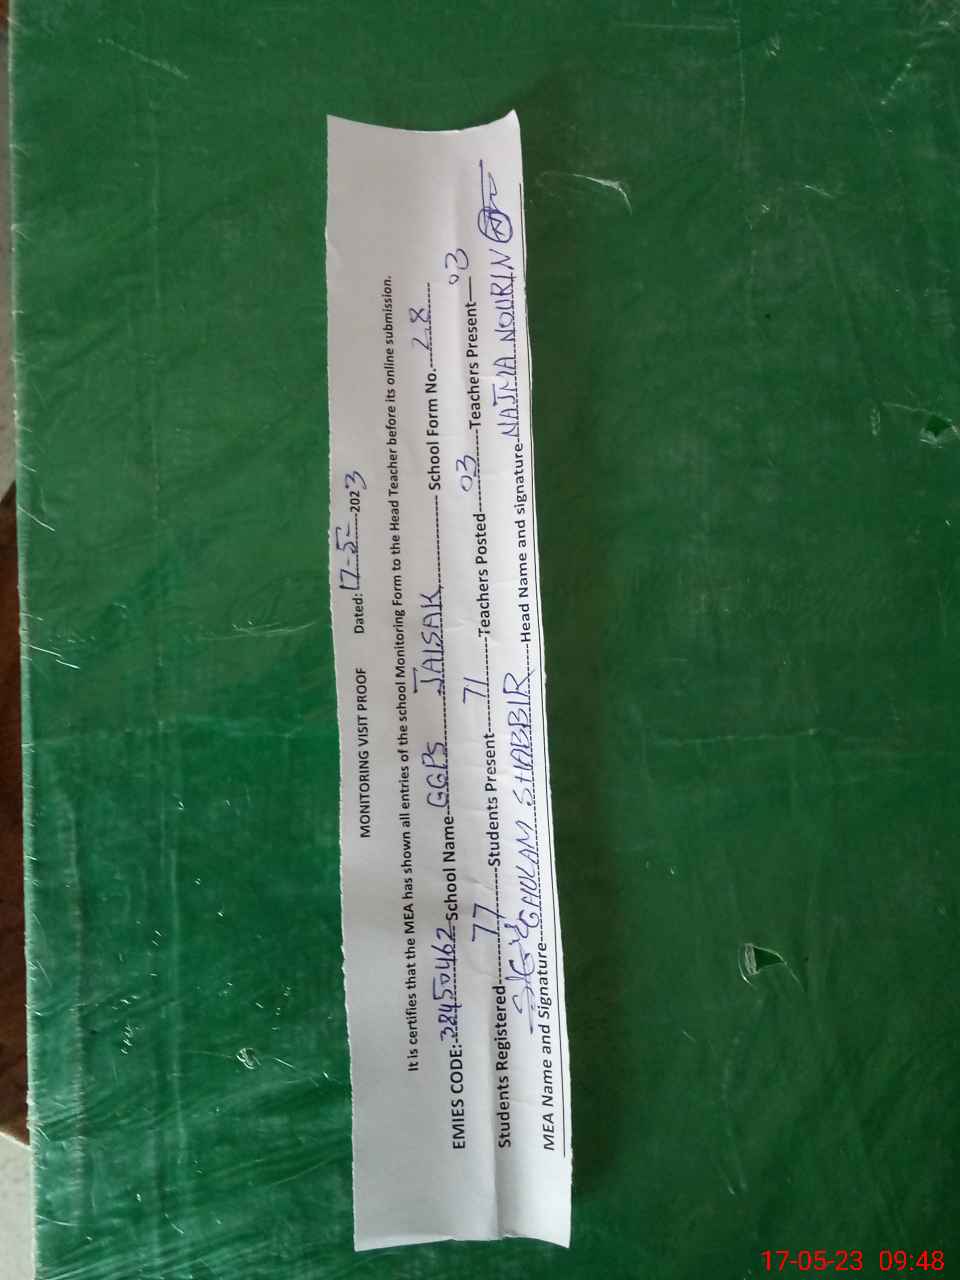 MONITORING VISIT PROOF Dated: 17-5-----2023
It is certifies that the MEA has shown all entries of the school Monitoring Form to the Head Teacher before its online submission.
EMIES CODE:-38450462-School Name--GGPS JAISAK School Form No.---28
Students Registered---77---Students Present---71---Teachers Posted---03---Teachers Present---03
MEA Name and Signature---GHULAM SHABBIR---Head Name and signature-NAJMA NOURIN
17-05-23 09:48